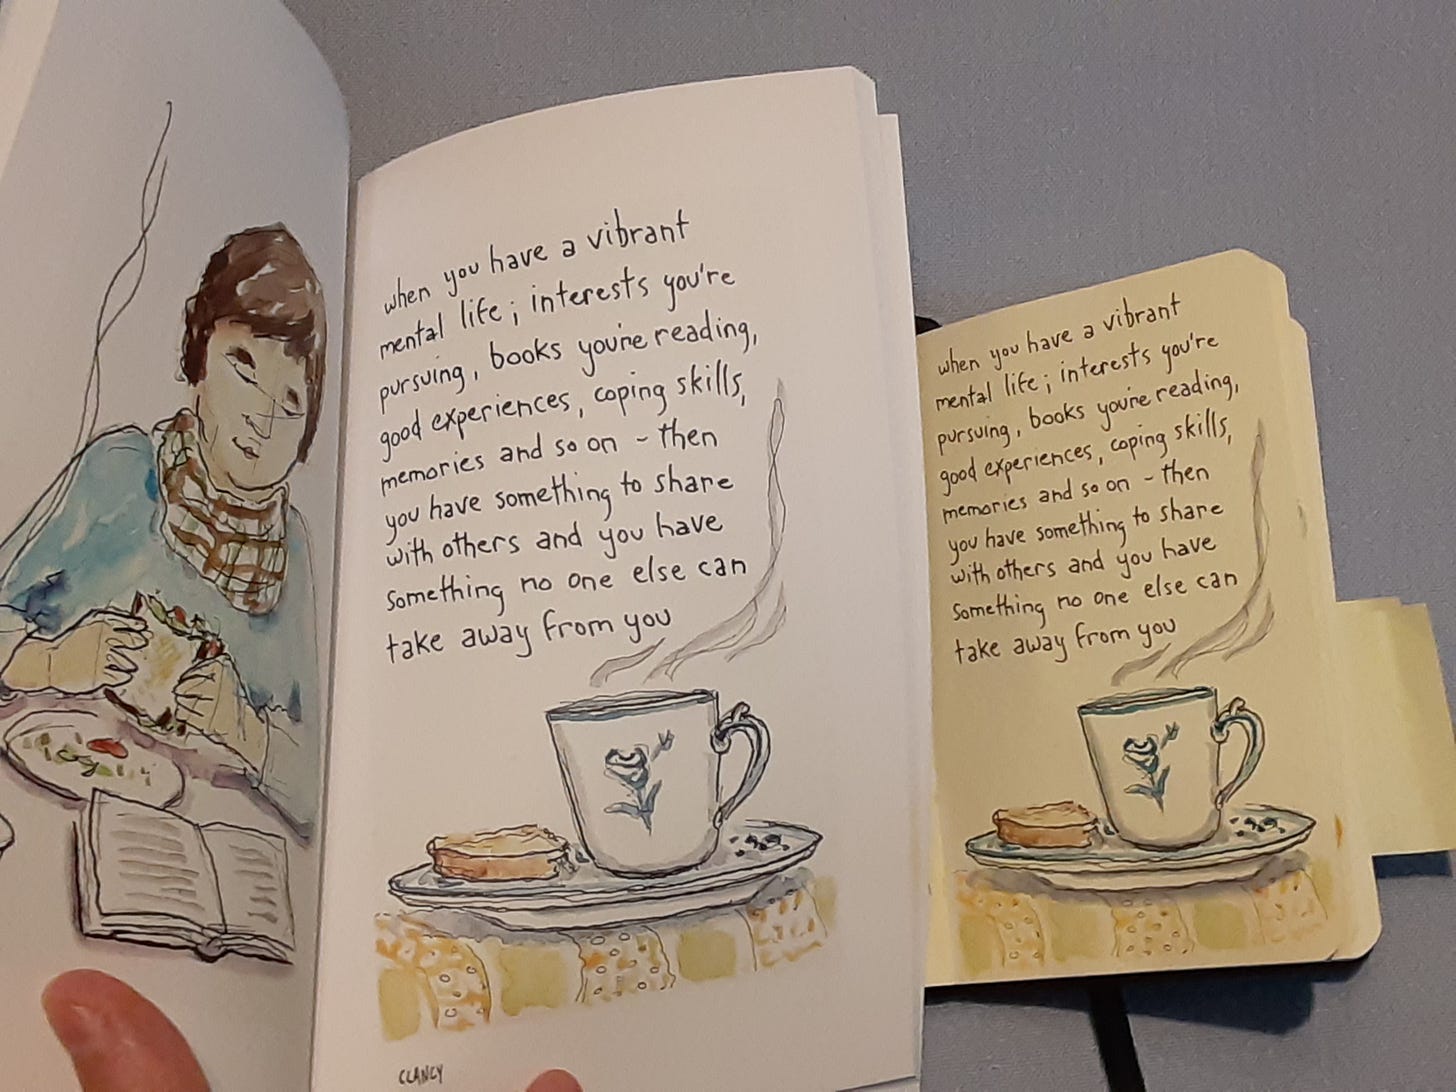 when you have a vibrant
mental life; interests you're
pursuing, books you're reading,
good experiences, coping skills,
memories and so on - then
you have something to share
with others and you have
something no one else can
take away from you
CLANCY
when you have a vibrant
mental life; interests you're
pursuing, books you're reading,
good experiences, coping skills,
memories and so on - then
you have something to share
with others and you have
something no one else can
take away from you